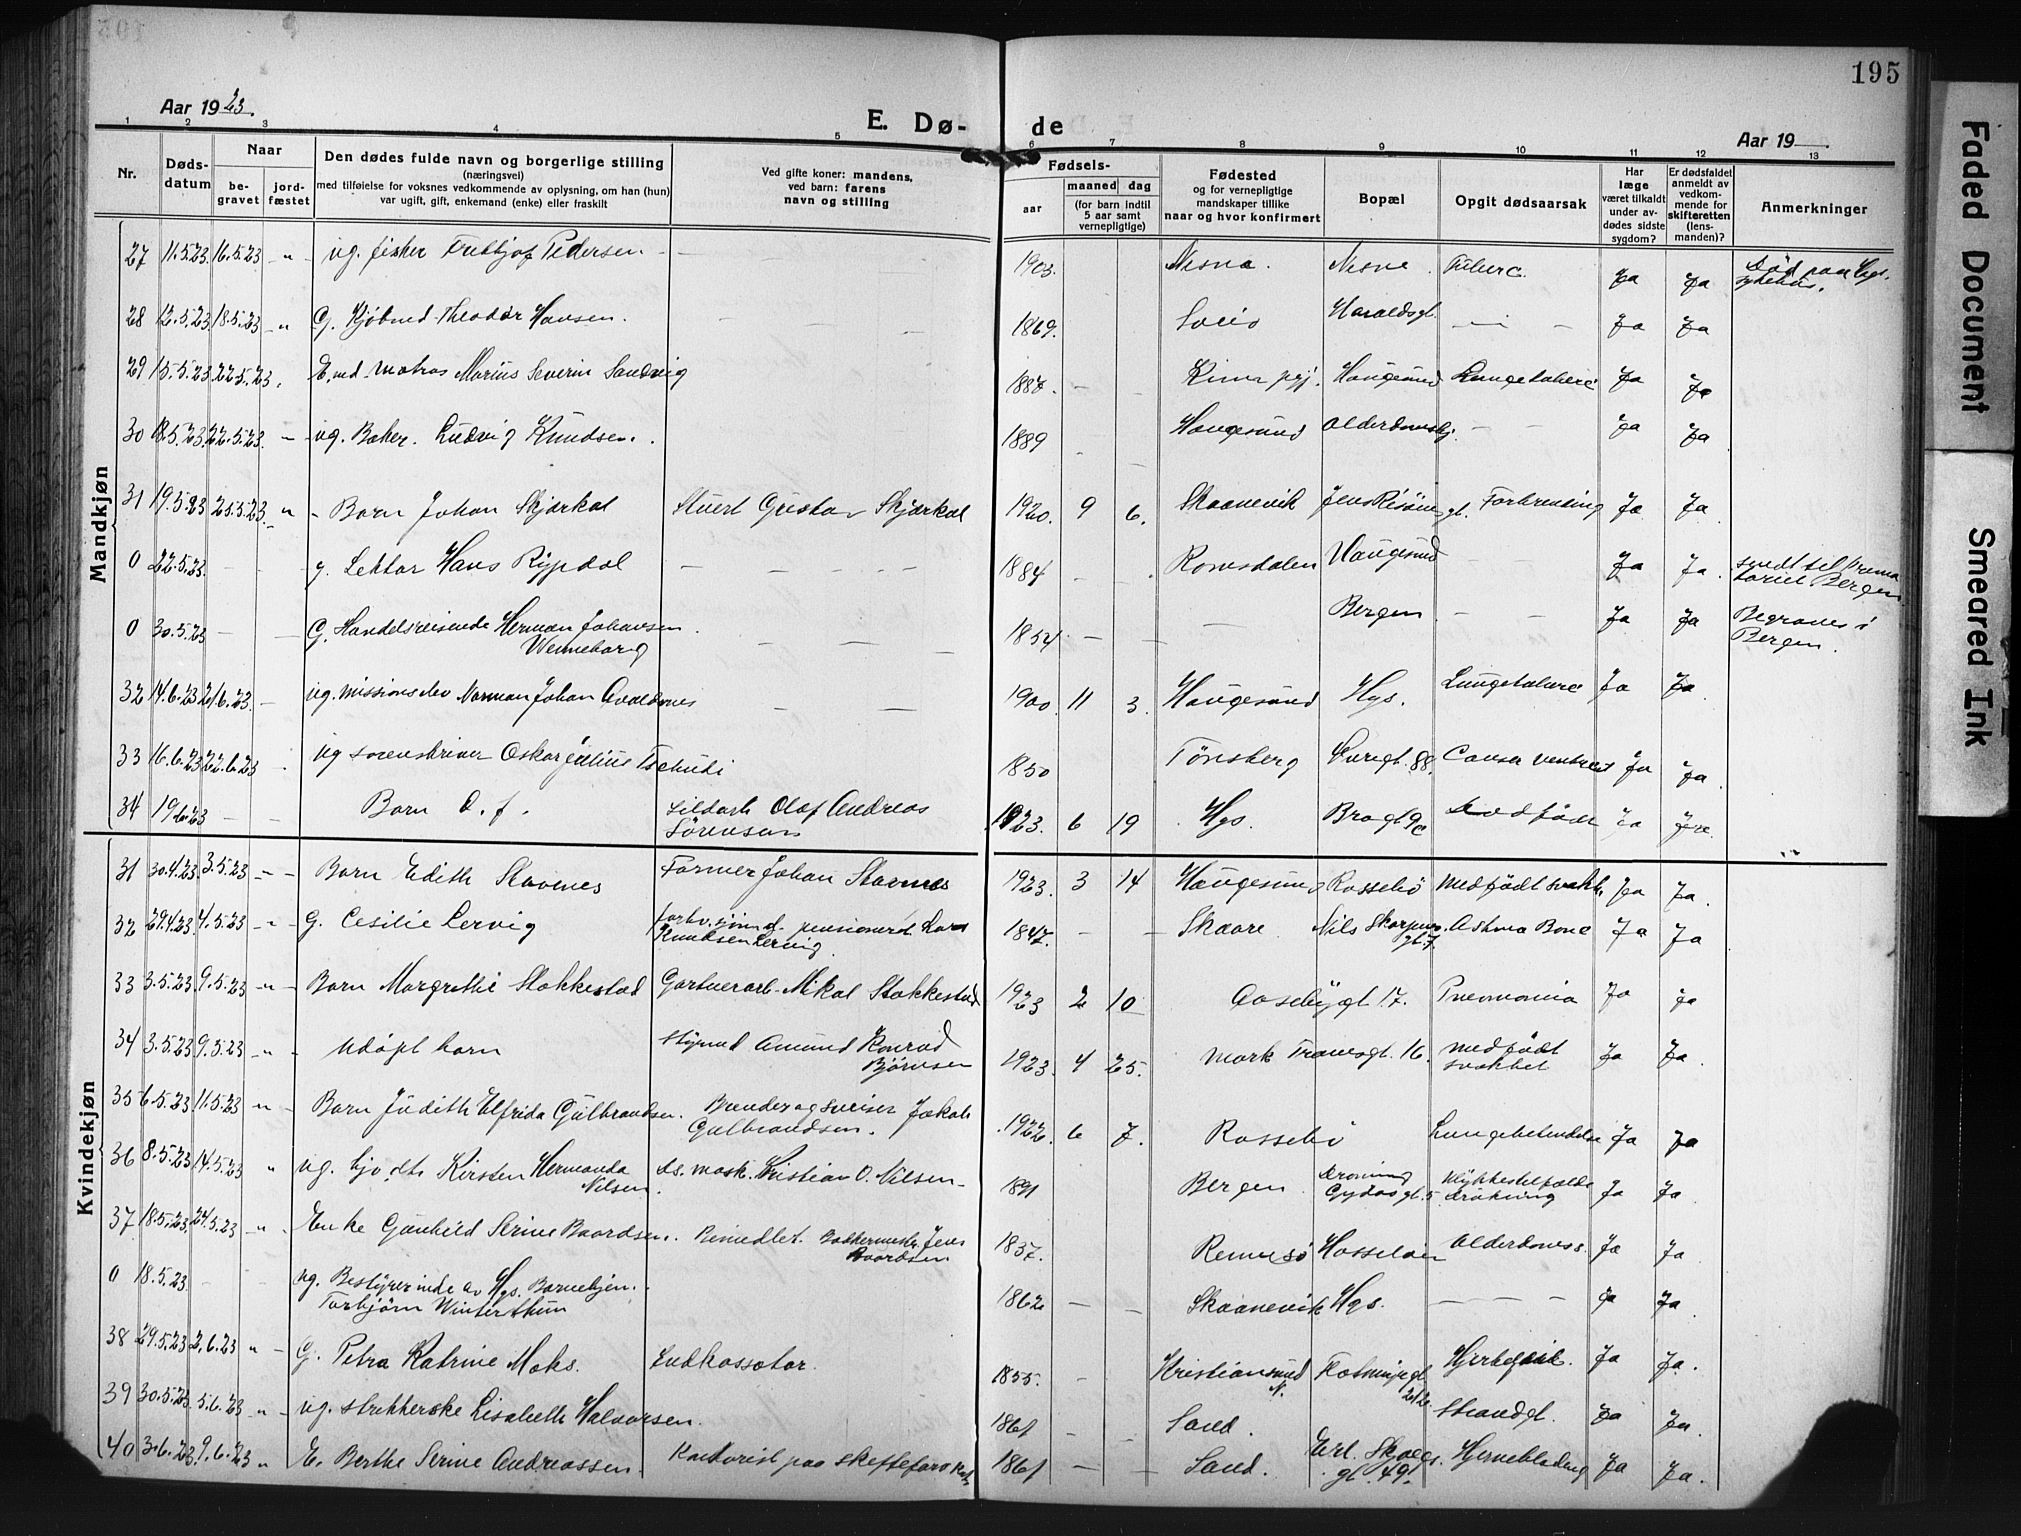 195
Aar 1923.
E. Dø-
de
Aar 19
1 2 3 4 5 6 7 8 9 10 11 12 13
Nr.
Døds-
datum
Naar
be-
gravet
jord-
fæstet
Den dødes fulde navn og borgerlige stilling
(næringsvei)
med tilføielse for voksnes vedkommende av oplysning, om han (hun)
var ugift, gift, enkemand (enke) eller fraskilt
Ved gifte koner: mandens,
ved barn: farens
navn og stilling
Fødsels-
aar
maaned
dag
(for barn indtil
5 aar samt
vernepligtige)
Fødested
og for vernepligtige
mandskaper tillike
naar og hvor konfirmert
Bopæl
Opgit dødsaarsak
Har
læge
været tilkaldt
under av-
dødes sidste
sygdom?
Er dødsfaldet
anmeldt av
vedkom-
mende for
skifteretten
(lens-
manden)?
Anmerkninger
Mandkjøn
27 11.5.23 16.5.23 " ug. fisker Pedersen 1903. Nesna. Nesne Ja Ja
28 12.5.23 18.5.23 " G. Kjøbmd Theodor Hansen. 1869. Haraldsgt. Ja Ja
29 15.5.23 22.5.23 E.md matros Marius Severin Sandvig 1887. Kinn pgj. Haugesund Ja Ja
30 18.5.23 22.5.23 ug. Baker Ludvig Knudsen. 1889 Haugesund Ja Ja
31 19.5.23 25.5.23 " Barn Johan Skjærkal Stuert Gustav Skjærkal 1920. 9 6. Skaanevik gt. Forbrending Ja Ja
0 22.5.23 g. Lektor Hans Rypdal 1884 Romsdalen Haugesund Ja Ja. sendt til krema
toriet Bergen
0 30.5.23 G. Handelsreisende Herman Johansen
Wenneborg 1854 Bergen Ja Ja Begraves i
Bergen.
32 14.6.23 21.6.23 ug. missionselev Norman Johan Avaldsnes 1900. 11 3. Haugesund Hgs. Ja Ja
33 16.6.23 22.6.23 ug sorenskriver Oskar Julius Tschudi 1850 Tønsberg 88. Cancer ventricul Ja Ja
34 19.6.23 Barn D. f. Sildarb Olaf Andreas
Sørensen 1923. 6 19 Hgs. Bragt 9c Dødføde Ja Ja
Kvindekjøn
31 30.4.23 3.5.23 Barn Edith Stavnes Former Johan Stavnes 1923. 3 14 Haugesund Rossebø Medfødt svakh. Ja Ja
32 29.4.23 4.5.23 " G. Cesilie Lervig forhv. sjømd. pensionert Lars
Knudsen Lervig 1847. Skaare Nils
gt. 7. Astma Ja Ja
33 3.5.23 9.5.23 " Barn Margrethe Stakkestad Gartnerarb. Mikal Stakkestad 1923 2 10 Aasebygt 17. Pneumonia Ja Ja
34 3.5.23 9.5.23 " udøpt barn Styrmd Amund Konrad
Bjørnsen 1923. 4 25. mark 16. medfødt
svakhet Ja Ja
35 6.5.23 11.5.23 " Barn Judith Elfrida Gulbrandsen. Brender og sveiser Jakob
Gulbrandsen. 1922. 6 7. Rossebø Lungebetendelse Ja Ja
36 8.5.23 14.5.23 " ug. Kirsten Hermanda
Nilsen. ds. mask. Kristian O. Nilsen 1891 Bergen Dronning
Gydas gt. 5 Ulykkestilfælde
drukning Ja Ja
37 18.5.23 24.5.23 " Enke Gunhild Serine Baardsen. Bimedlet. Jens
Baardsen 1837. Rennesø Hasseløen Alderdomss. Ja Ja
0 18.5.23 ug. Bestyrerinde av Hgs. Barnehjem.
Torbjørn Winterthun 1862 Skaanevik Hgs. Ja Ja
38 29.5.23 2.6.23 " G. Petra Katrine Moks. Indkassator. 1855. Kristiansund
N. Flotmyrgt.
Hjertefeil. Ja Ja.
39 30.5.23 5.6.23 " ug. strikkerske Lisabeth Halvorsen. 1861 Sand. Strandgt. Ja Ja
40 3.6.23 9.6.23 " E. Berthe Serine Andreassen Kontorist paa 1861 Sand. Erl. Skjalgs.
gt. 49! Hjerneblødning Ja Ja.
Faded Document
Smeared Ink